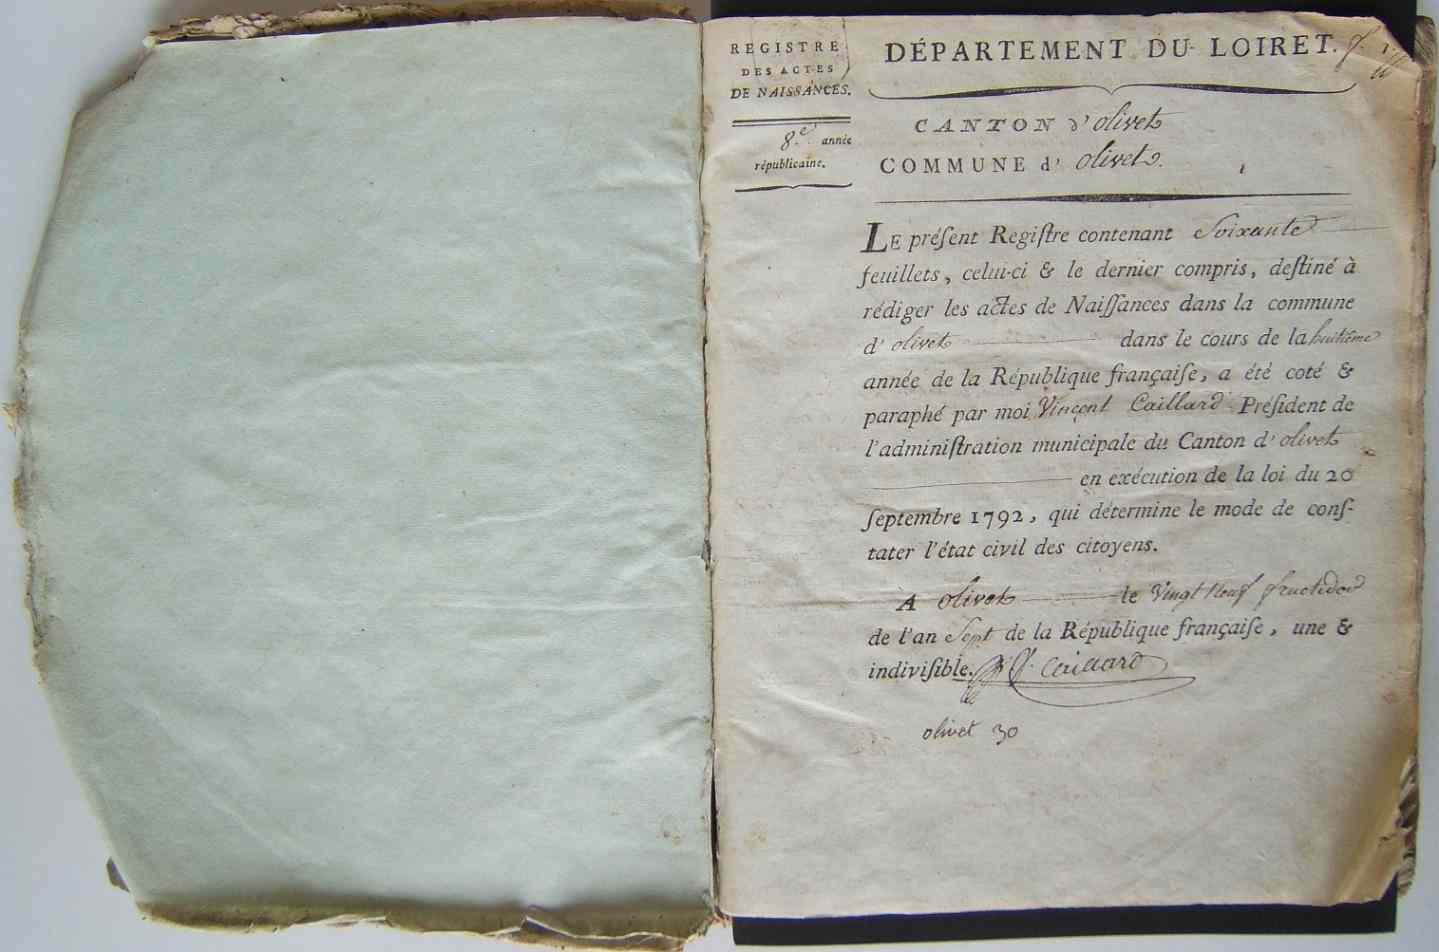 REGISTRE
DES ACTES
DE NAISSANCES.
8.e année
républicaine.
DÉPARTEMENT DU LOIRET.
CANTON d'olivet
COMMUNE d' olivet.
LE préſent Regiſtre contenant Soixante
feuillets, celui-ci & le dernier compris, deſtiné à
rédiger les actes de Naiſſances dans la commune
d' olivet dans le cours de la huitième
année de la République françaiſe, a été coté &
paraphé par moi Vincent Caillard Préſident de
l'adminiſtration municipale du Canton d'olivet
en exécution de la loi du 20
ſeptembre 1792, qui détermine le mode de conſ-
tater l'état civil des citoyens.
À olivet le Vingt neuf fructidor
de l'an Sept de la République françaiſe, une &
indiviſible. Caillard
olivet 30